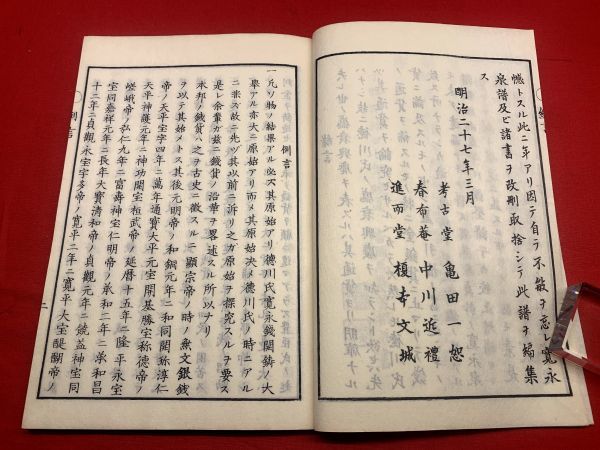 憾トスル此ニ年アリ因テ自ラ不敏ヲ忘レ寛永
泉譜及ビ諸書ヲ改刪取捨シテ此譜ヲ編集
ス
明治二十七年三月
考古堂 亀田一恕
春布菴 中川近禮
進而堂 榎本文城
例言
一凡ソ物ノ結果アル必ズ其原始アリ徳川氏寛永錢開鋳ノ大
挙アル亦大ニ原始アリ而メ其原始決メ徳川氏ノ時ニアル
ニ非ズ故ニ先ヅ其以前ニ泝リ之ガ原始ヲ探究スルヲ要ス
是レ余輩ガ茲ニ錢貨ノ沿革ヲ畧述スル所以ナリ
本邦ノ錢貨ハ之ヲ古史ニ徴スルニ顕宗帝ノ時ノ魚文銀銭
ヲ以テ其始メトス其後元明帝ノ和銅元年ニ和同開珎淳仁
帝ノ天平宝字四年ニ萬年通寳大平元宝開基勝宝称徳帝ノ
天平神護元年ニ神功開宝桓武帝ノ延暦十五年ニ隆平永宝
嵯峨帝ノ弘仁九年ニ富壽神宝仁明帝ノ承和二年ニ承和昌
宝同嘉祥元年ニ長年大寳清和帝ノ貞觀元年ニ饒益神宝同
十二年ニ貞觀永宝宇多帝ノ寛平二年ニ寛平大宝醍醐帝ノ
例言
二